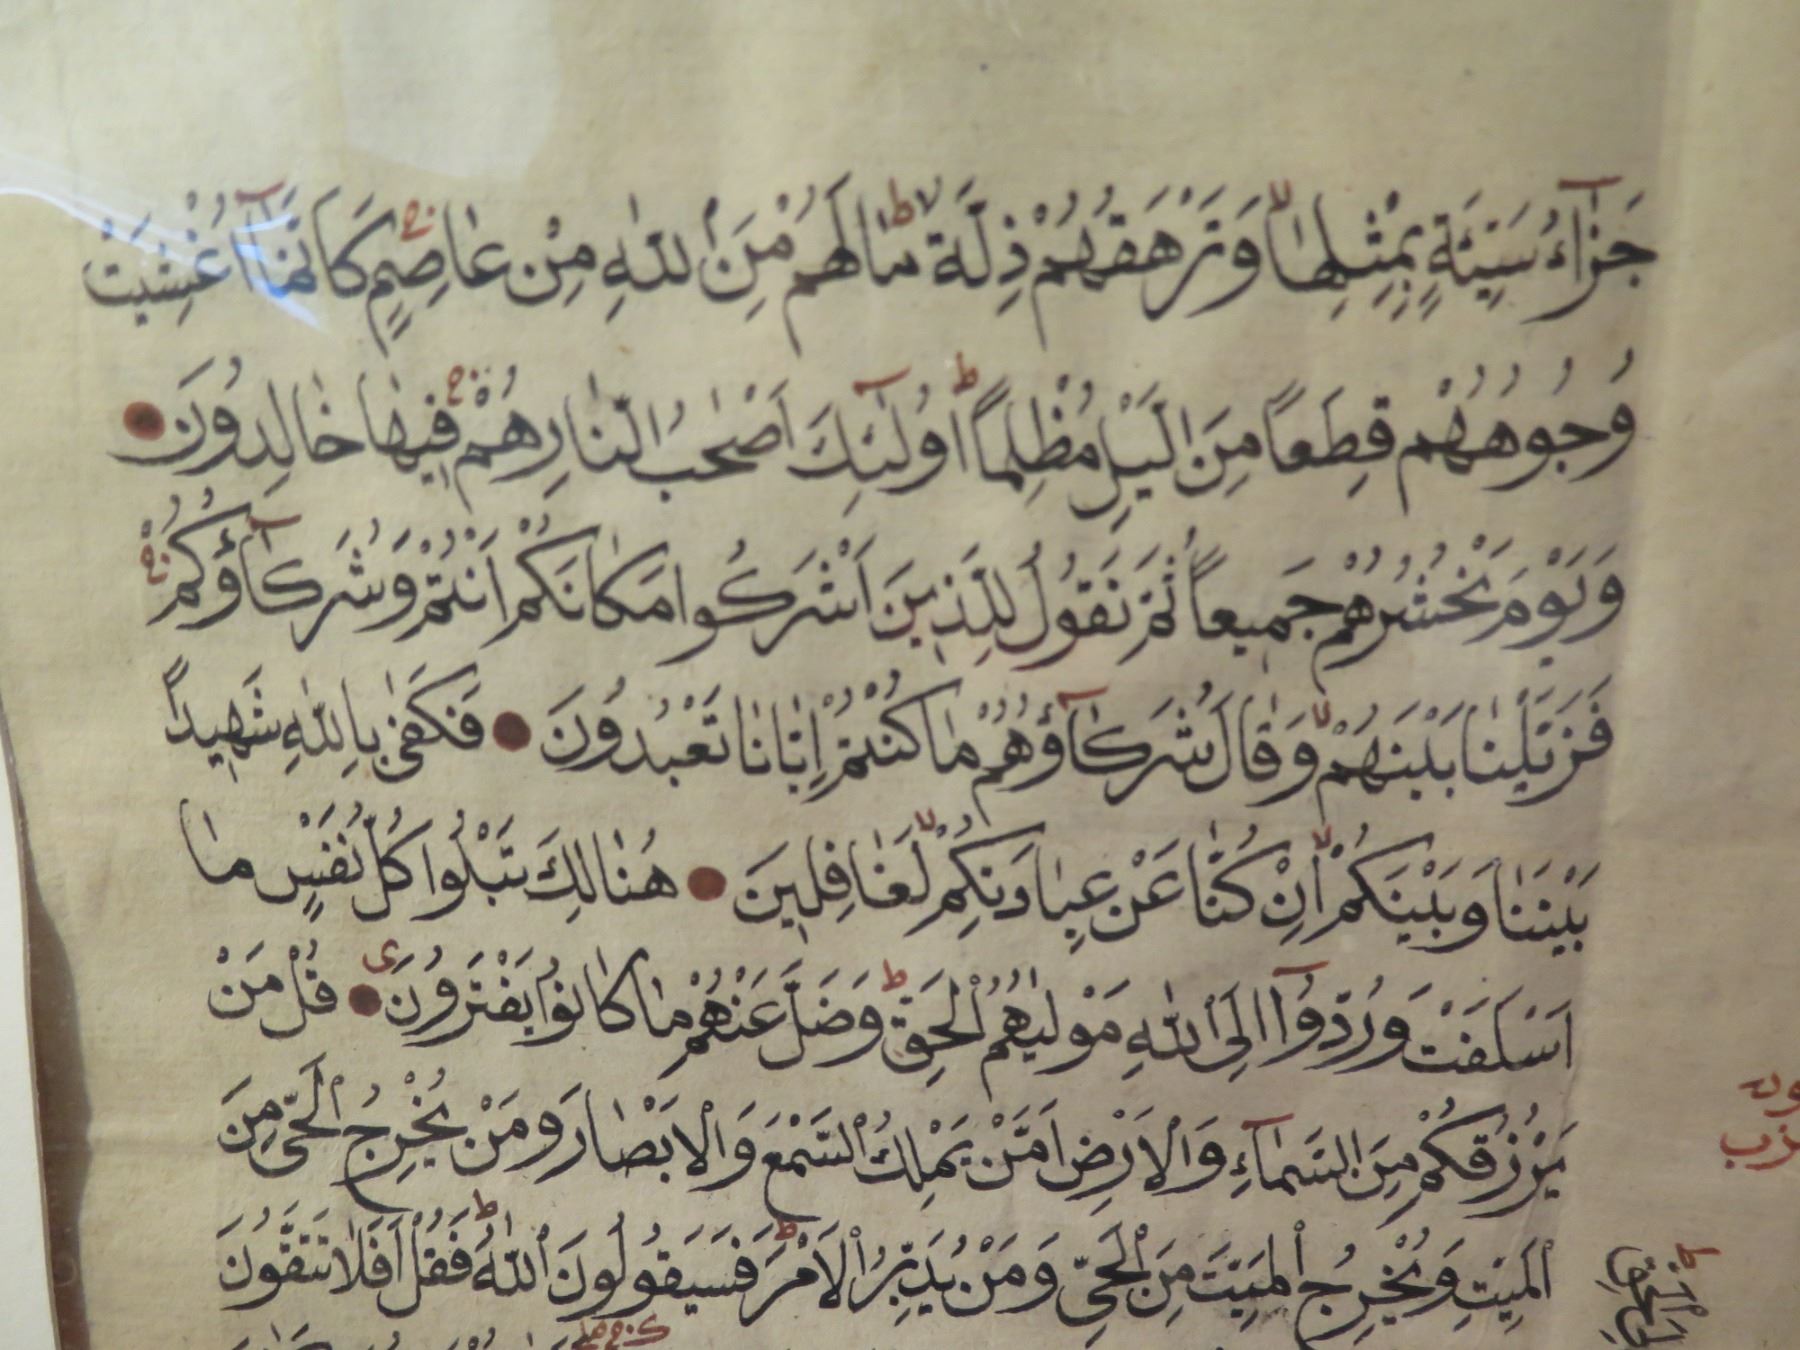 جَزَآءُ سَيِّئَةٍ بِمِثْلِهَا وَتَرْهَقُهُمْ ذِلَّةٌ مَالَهُمْ مِنَ اللهِ مِنْ عَاصِمٍ كَاَنَّمَآ اُغْشِيَتْ
وُجُوهُهُمْ قِطَعاً مِنَ الَّيْلِ مُظْلِماً اُولٰٓئِكَ اَصْحَابُ النَّارِ هُمْ فِيهَا خَالِدُونَ
وَيَوْمَ نَحْشُرُهُمْ جَمِيعاً ثُمَّ نَقُولُ لِلَّذِينَ اَشْرَكُوا مَكَانَكُمْ اَنْتُمْ وَشُرَكَآؤُكُمْ
فَزَيَّلْنَا بَيْنَهُمْ وَقَالَ شُرَكَآؤُهُمْ مَا كُنْتُمْ اِيَّانَا تَعْبُدُونَ فَكَفٰى بِاللهِ شَهِيداً
بَيْنَنَا وَبَيْنَكُمْ اِنْ كُنَّا عَنْ عِبَادَتِكُمْ لَغَافِلِينَ هُنَالِكَ تَبْلُوا كُلُّ نَفْسٍ مَا
اَسْلَفَتْ وَرُدُّوٓا اِلَى اللهِ مَوْلٰيهُمُ الْحَقِّ وَضَلَّ عَنْهُمْ مَا كَانُوا يَفْتَرُونَ قُلْ مَنْ
يَرْزُقُكُمْ مِنَ السَّمَآءِ وَالْاَرْضِ اَمَّنْ يَمْلِكُ السَّمْعَ وَالْاَبْصَارَ وَمَنْ يُخْرِجُ الْحَيَّ مِنَ
الْمَيِّتِ وَيُخْرِجُ الْمَيِّتَ مِنَ الْحَيِّ وَمَنْ يُدَبِّرُ الْاَمْرَ فَسَيَقُولُونَ اللهُ فَقُلْ اَفَلَا تَتَّقُونَ